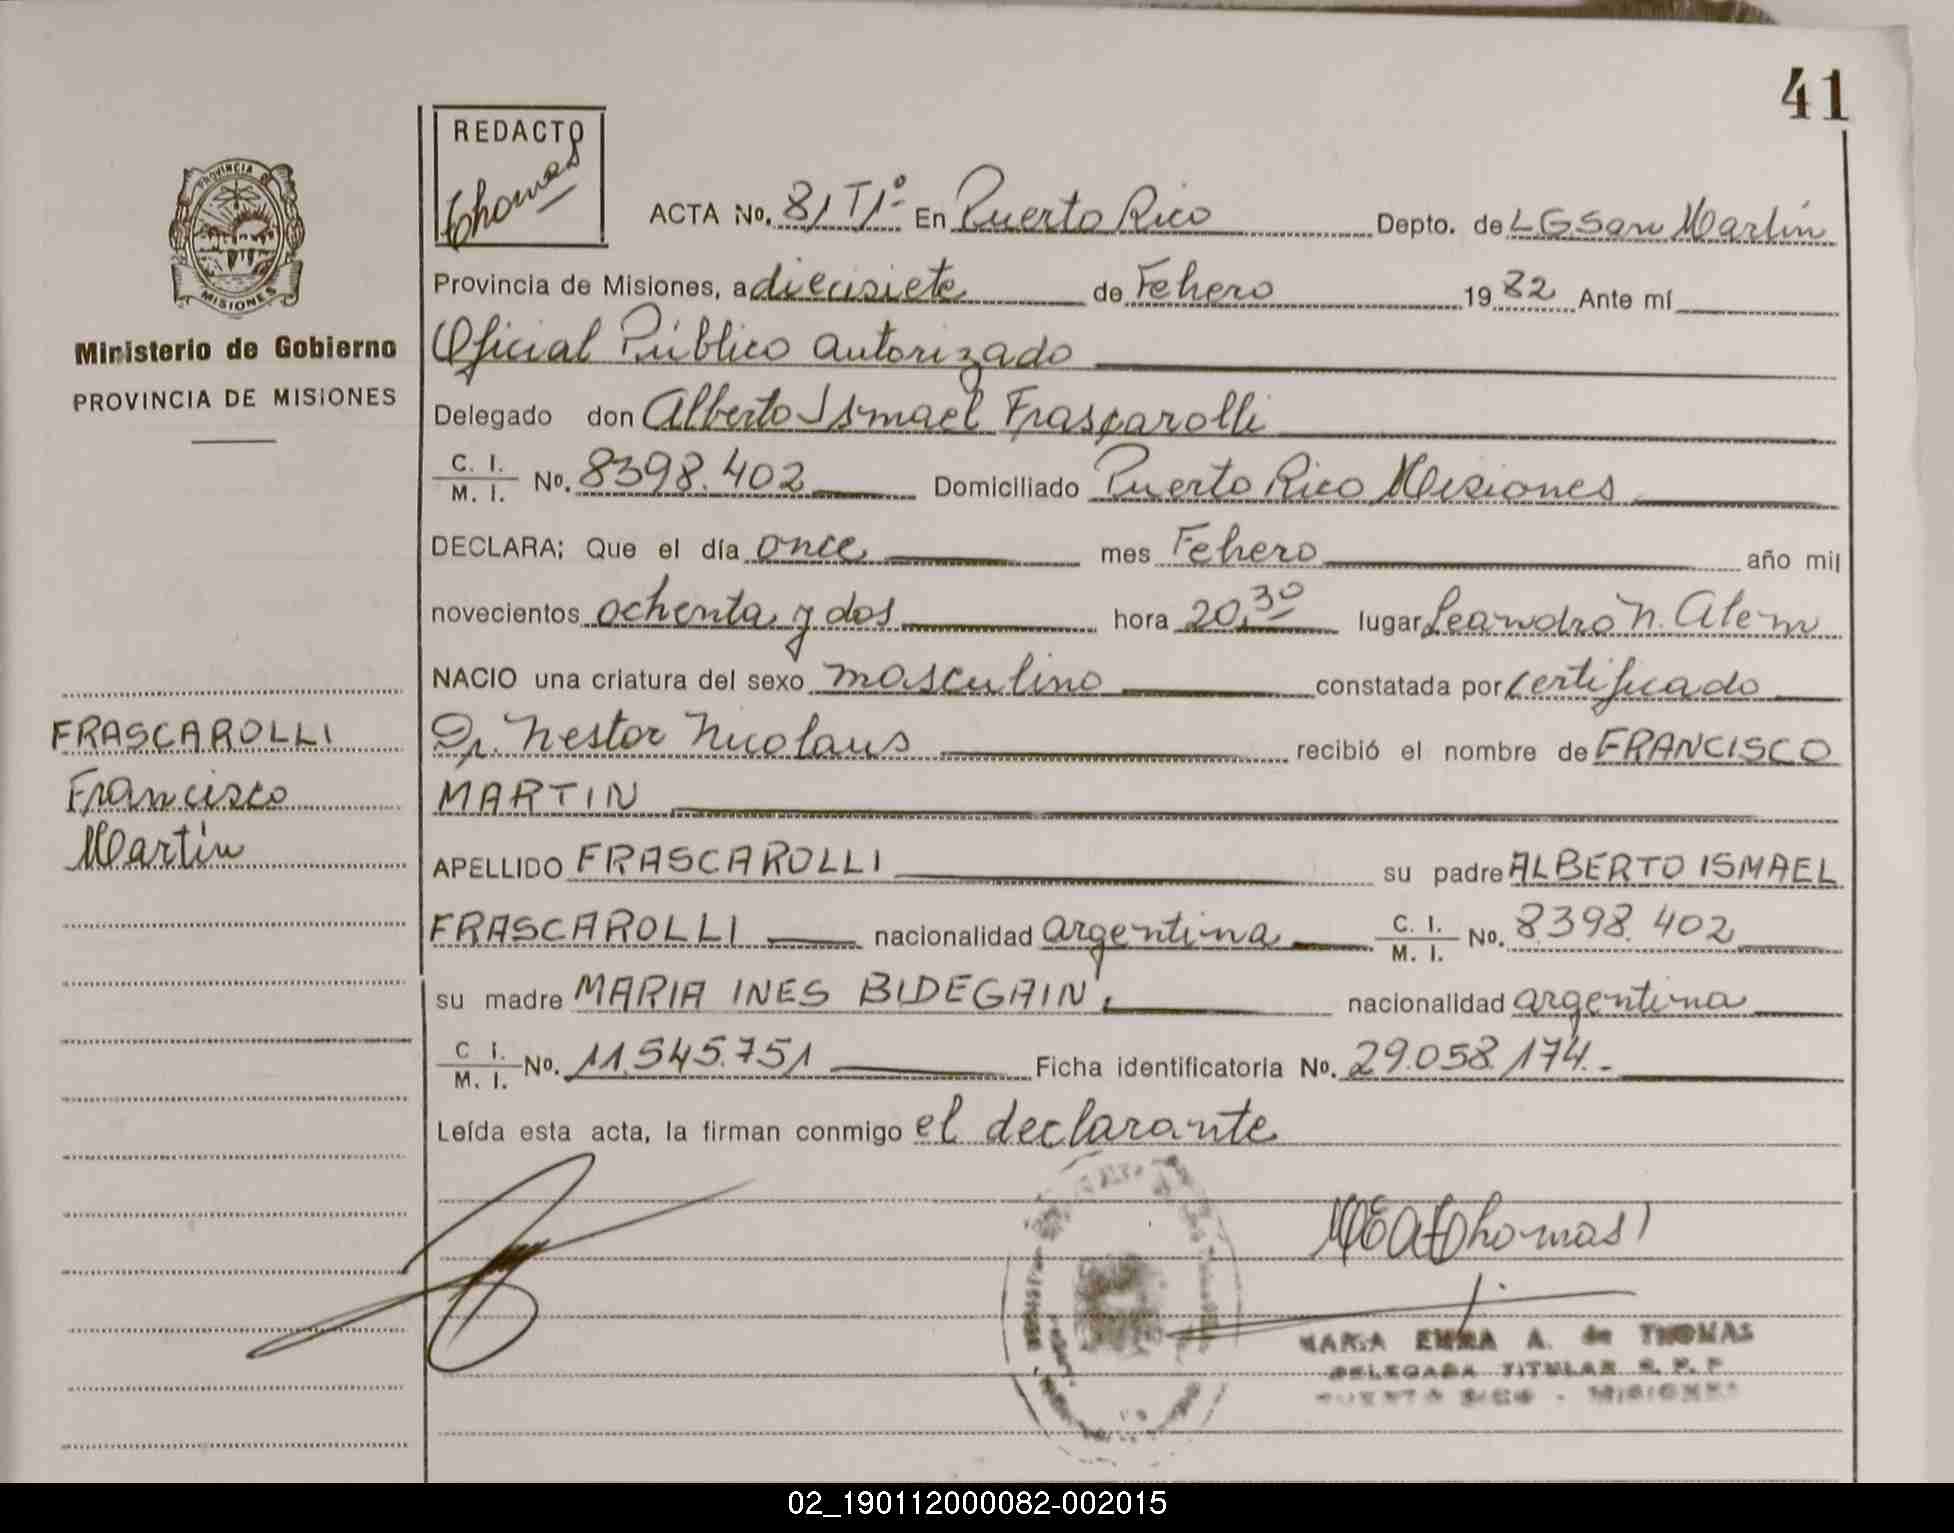 41
REDACTO
Thomas
PROVINCIA DE
MISIONES
Ministerio de Gobierno
PROVINCIA DE MISIONES
ACTA No. 81 T1º En Puerto Rico Depto. de L G San Martín
Provincia de Misiones, a diecisiete de Febrero 1982 Ante mí
Oficial Público autorizado
Delegado don Alberto Ismael Frascarolli
C. I. / M. I. No. 8398.402 Domiciliado Puerto Rico Misiones
DECLARA; Que el día once mes Febrero año mil
novecientos ochenta y dos hora 20,30 lugar Leandro N. Alem
NACIO una criatura del sexo masculino constatada por certificado
Dr. Nestor Nicolaus recibió el nombre de FRANCISCO
MARTIN
APELLIDO FRASCAROLLI su padre ALBERTO ISMAEL
FRASCAROLLI nacionalidad argentina C. I. / M. I. No. 8.398.402
su madre MARIA INES BIDEGAIN, nacionalidad argentina
C I. / M. I. No. 11.545.751 Ficha identificatoria No. 29.058.174.-
Leída esta acta, la firman conmigo el declarante
FRASCAROLLI
Francisco
Martín
MEAThomas
MARIA EMMA A. de THOMAS
DELEGADA TITULAR R. P. P
PUERTO RICO - MISIONES
02_190112000082-002015